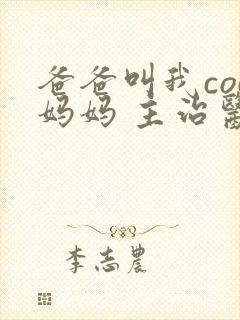 爸爸叫我co
妈妈 主治醫
李志農